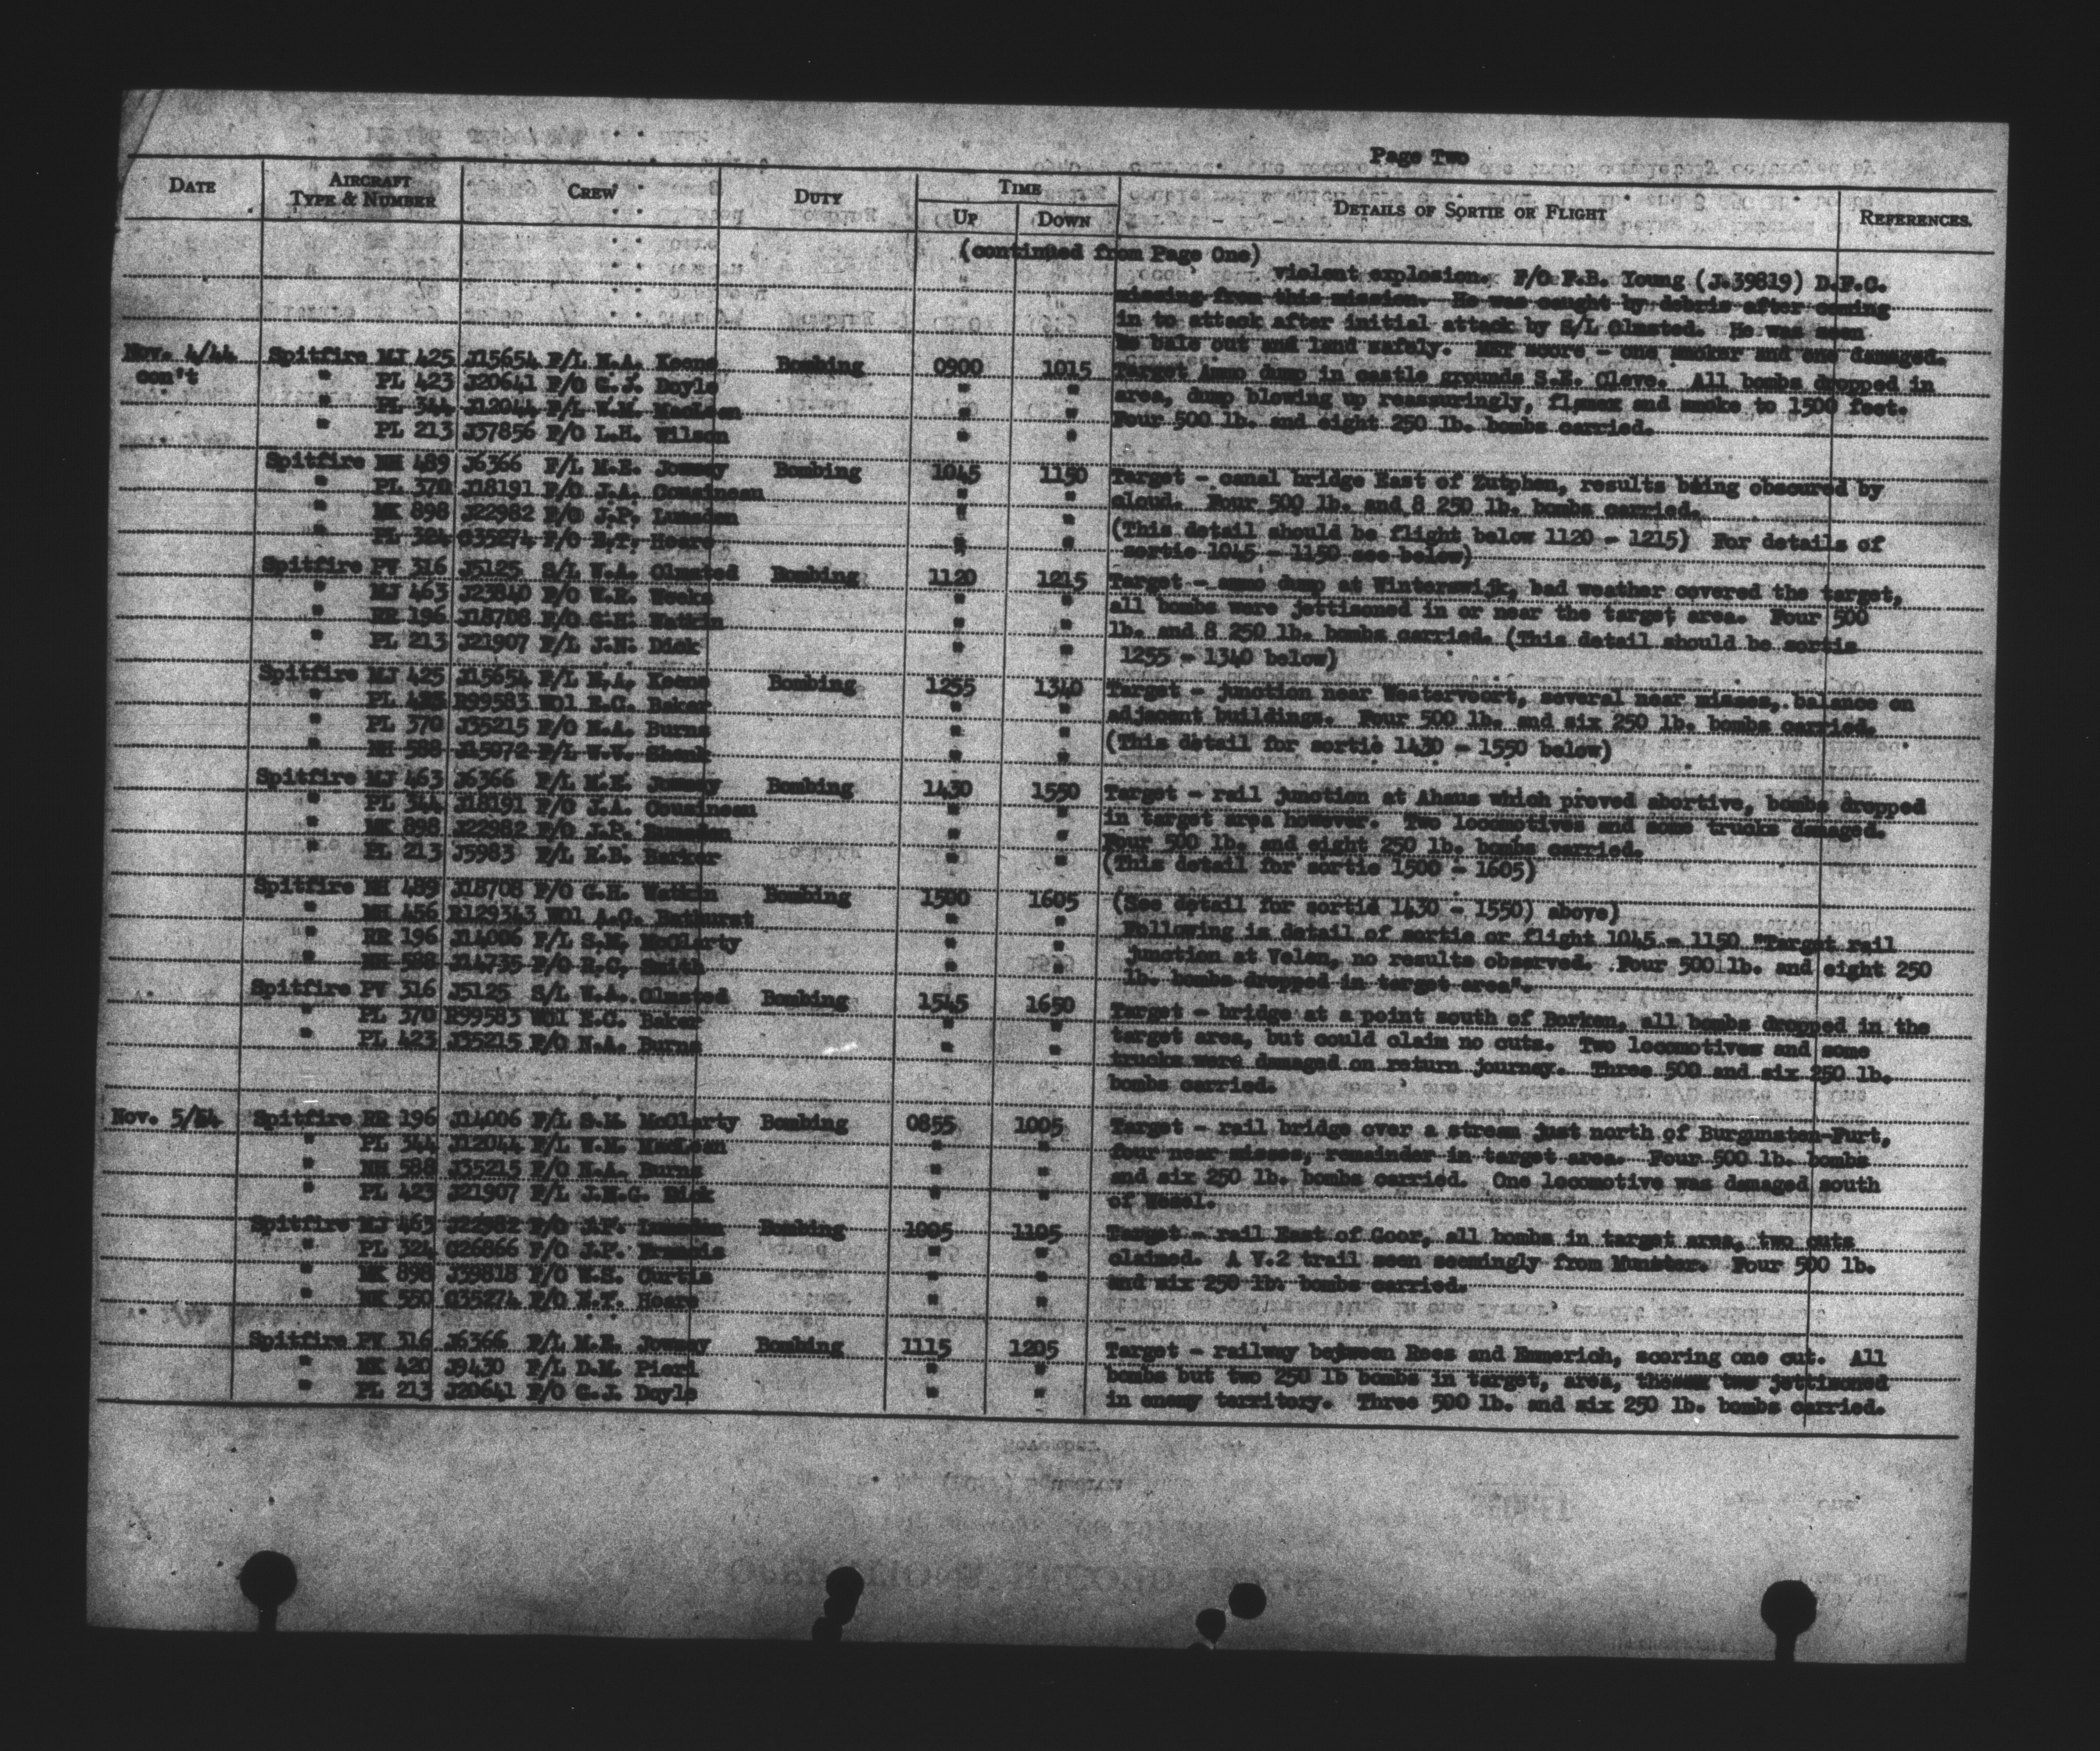 Page Two
DATE AIRCRAFT TYPE & NUMBER CREW DUTY TIME UP DOWN DETAILS OF SORTIE OR FLIGHT REFERENCES.
(continued from Page One)
violent explosion. F/O F.B. Young (J.39819) D.F.C.
missing from this mission. He was caught by debris after coming
in to attack after initial attack by S/L Olmsted. He was seen
to bale out and land safely. MET score - one smoker and one damaged.
Nov. 4/44 Spitfire MJ 425 J15654 F/L N.A. Keene Bombing 0900 1015 Target Ammo dump in castle grounds S.E. Cleve. All bombs dropped in
con't " PL 423 J20641 F/O G.J. Doyle " " area, dump blowing up reassuringly, flames and smoke to 1500 feet.
" PL 344 J12044 F/L W.M. MacLean " " Four 500 lb. and eight 250 lb. bombs carried.
" PL 213 J37856 F/O L.H. Wilson " "
Spitfire NH 489 J6366 F/L M.E. Jowsey Bombing 1045 1150 Target - canal bridge East of Zutphen, results being obscured by
" PL 370 J18191 F/O J.A. Cousineau " " cloud. Four 500 lb. and 8 250 lb. bombs carried.
" MK 898 J22982 F/O J.P. Lumsden " " (This detail should be flight below 1120 - 1215) For details of
" PL 324 C35274 F/O E.T. Hoare " " sortie 1045 - 1150 see below)
Spitfire PV 316 J5125 S/L W.A. Olmsted Bombing 1120 1215 Target - ammo dump at Winterswijk, bad weather covered the target,
" MJ 463 J23840 F/O W.R. Weeks " " all bombs were jettisoned in or near the target area. Four 500
" RR 196 J18708 F/O G.H. Watkin " " lb. and 8 250 lb. bombs carried. (This detail should be sortie
" PL 213 J21907 F/L J.N. Dick " " 1255 - 1340 below)
Spitfire MJ 425 J15654 F/L N.A. Keene Bombing 1255 1340 Target - junction near Westervoort, several near misses, balance on
" PL R99583 WO1 E.C. Baker " " adjacent buildings. Four 500 lb. and six 250 lb. bombs carried.
" PL 370 J35215 F/O N.A. Burns " " (This detail for sortie 1430 - 1550 below)
" NH 588 J15072 F/L W.V. Shenk " "
Spitfire MJ 463 J6366 F/L M.E. Jowsey Bombing 1430 1550 Target - rail junction at Ahaus which proved abortive, bombs dropped
" PL 344 J18191 F/O J.A. Cousineau " " in target area however. Two locomotives and some trucks damaged.
" MK 898 J22982 F/O J.P. " " Four 500 lb. and eight 250 lb. bombs carried.
" PL 213 J5983 F/L K.B. Barker " " (This detail for sortie 1500 - 1605)
Spitfire NH 489 J18708 F/O G.H. Watkin Bombing 1500 1605 (See detail for sortie 1430 - 1550) above)
" NH 456 R129343 WO1 A.C. Bathurst " " Following is detail of sortie or flight 1045 - 1150 "Target rail
" RR 196 J14006 F/L S.M. McClarty " " junction at Velen, no results observed. Four 500 lb. and eight 250
" NH 588 J14735 F/O R.C. Smith " " lb. bombs dropped in target area".
Spitfire PV 316 J5125 S/L W.A. Olmsted Bombing 1545 1650 Target - bridge at a point south of Borken, all bombs dropped in the
" PL 370 R99583 WO1 E.C. Baker " " target area, but could claim no cuts. Two locomotives and some
" PL 423 J35215 F/O N.A. Burns " " trucks were damaged on return journey. Three 500 and six 250 lb.
bombs carried.
Nov. 5/54 Spitfire RR 196 J14006 F/L S.M. McClarty Bombing 0855 1005 Target - rail bridge over a stream just north of Burgunsten-Furt,
" PL 344 J12044 F/L W.M. MacLean " " four near misses, remainder in target area. Four 500 lb. bombs
" NH 588 J35215 F/O N.A. Burns " " and six 250 lb. bombs carried. One locomotive was damaged south
" PL 423 J21907 F/L J.N.G. Dick " " of Wesel.
Spitfire MJ 463 J22982 F/O J.P. Lumsden Bombing 1005 1105 Target - rail East of Goor, all bombs in target area, two cuts
" PL 324 C26866 F/O J.P. Francis " " claimed. A V.2 trail seen seemingly from Munster. Four 500 lb.
" MK 898 J39818 F/O W.S. Curtis " " and six 250 lb. bombs carried.
" NK 550 C35274 F/O E.T. Hoare " "
Spitfire PV 316 J6366 F/L M.E. Jowsey Bombing 1115 1205 Target - railway between Rees and Emmerich, scoring one cut. All
" MK 420 J9430 F/L D.M. Pieri " " bombs but two 250 lb bombs in target, area, two jettisoned
" PL 213 J20641 F/O G.J. Doyle " " in enemy territory. Three 500 lb. and six 250 lb. bombs carried.